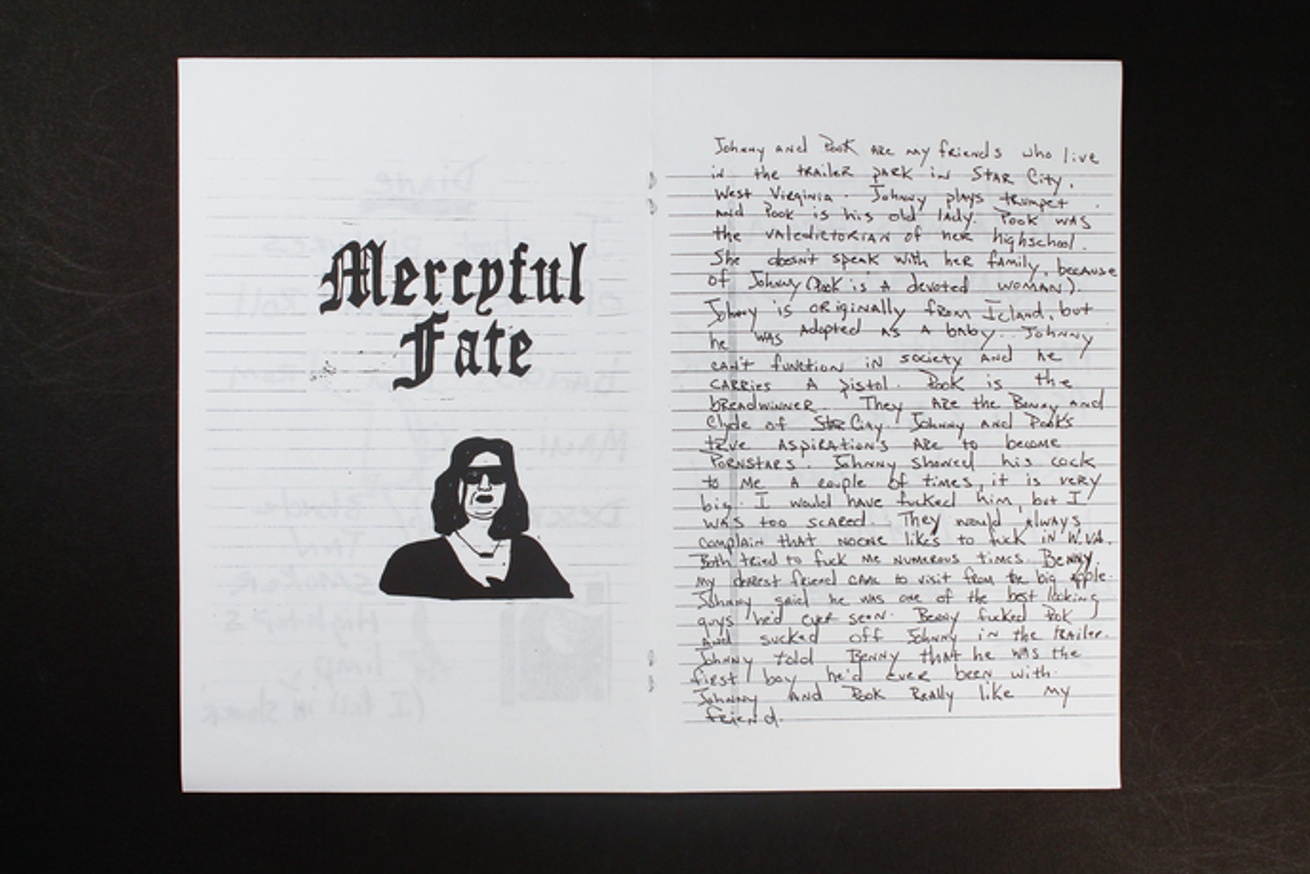 Mercyful
Fate
Johnny and Pook are my friends who live
in the trailer park in Star City,
West Virginia. Johnny plays trumpet
and Pook is his old lady. Pook was
the valedictorian of her highschool.
She doesn't speak with her family, because
of Johnny (Pook is a devoted woman).
Johnny is originally from Icland, but
he was adopted as a baby. Johnny
can't function in society and he
carries a pistol. Pook is the
breadwinner. They are the Bonny and
Clyde of Star City. Johnny and Pook's
true aspirations are to become
Pornstars. Johnny showed his cock
to me a couple of times, it is very
big. I would have fucked him, but I
was too scared. They would always
complain that noone likes to fuck in W.VA.
Both tried to fuck me numerous times. Benny
my dearest friend came to visit from the big apple.
Johnny said he was one of the best looking
guys he'd ever seen. Benny fucked Pok
and sucked off Johnny in the trailer.
Johnny told Benny that he was the
first boy he'd ever been with.
Johnny and Pook Really like my
friend.
Diane
I shot pictures
Roll
Maui
Blonde
Tan
smoker
High tops
limp
(I fell in shower